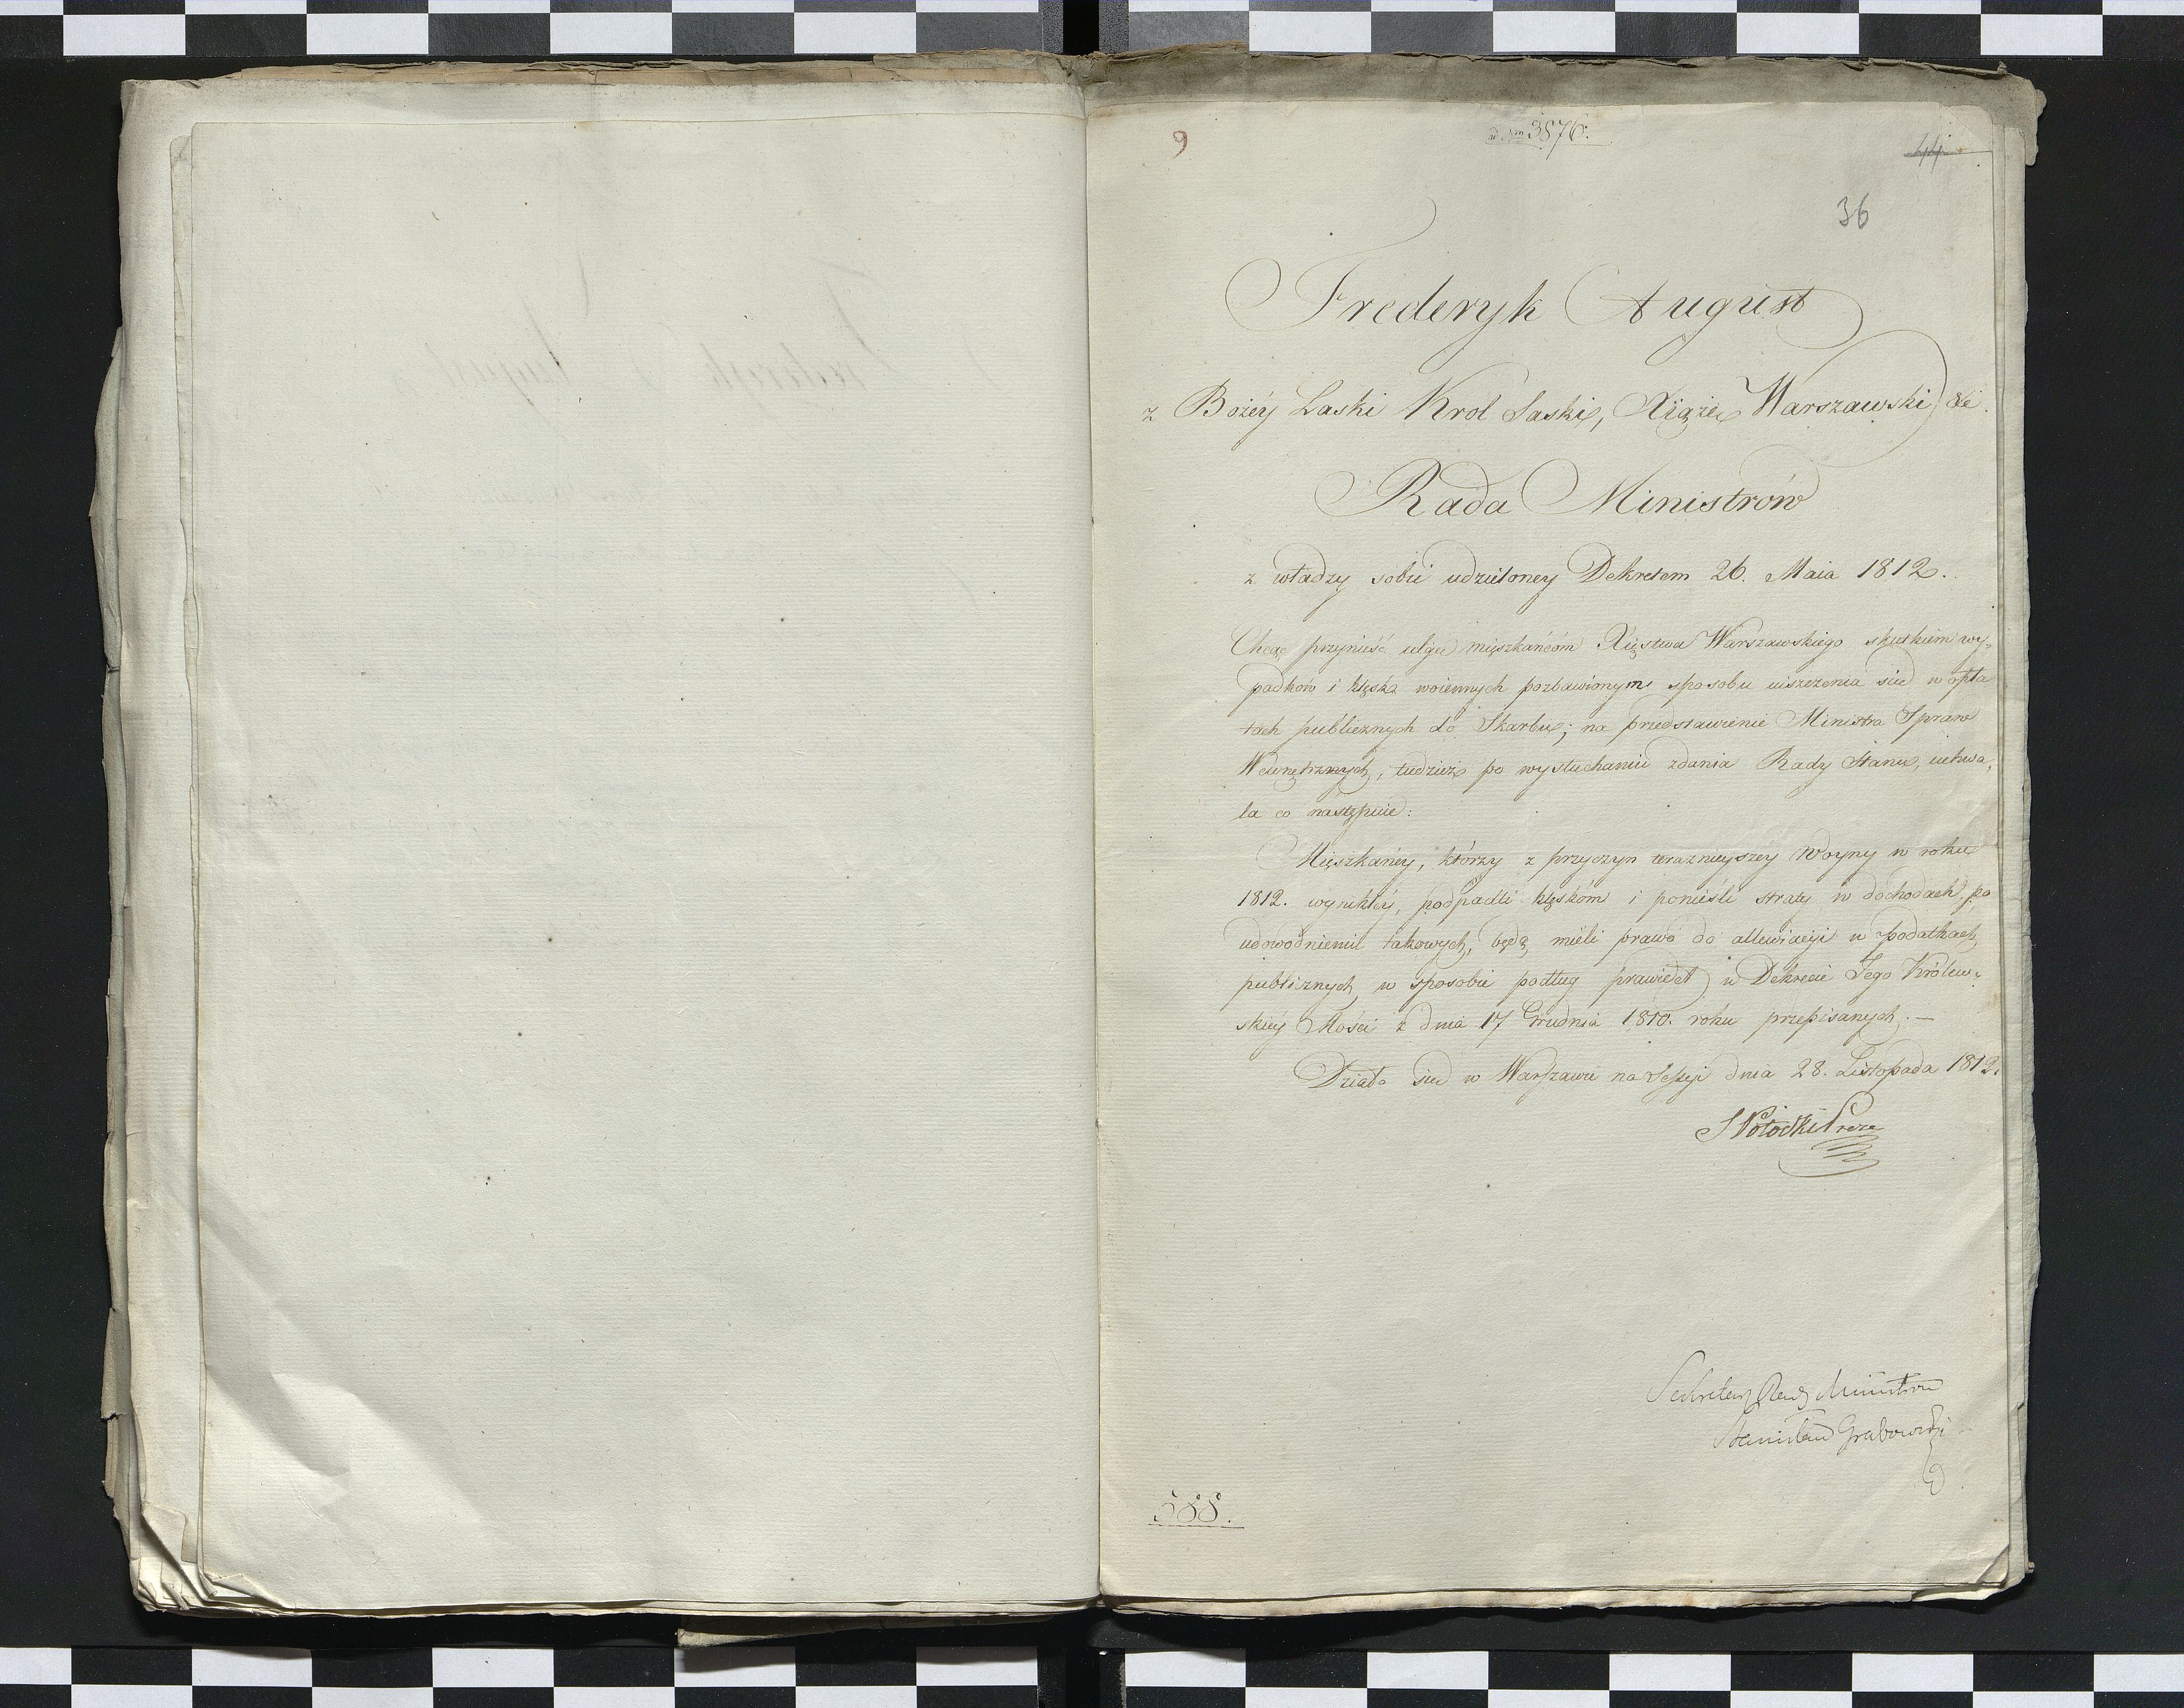 9
ad Num 3876.
44
36
Frederyk August
z Bożéy Laski Krol Saski, Xiąże Warszawski &c.
Rada Ministrów
z władzy sobie udzieloney Dekretem 26. Maia 1812.
Chcąc przynieść ulgę mięszkańcóm Xięstwa Warszawskiego skutkiem wy-
padków i klęsk woiennych pozbawionym sposobu uiszczenia się w opła
tach publicznych do Skarbu; na przedstawienie Ministra Spraw
Wewnętrznych, tudzież po wysłuchaniu zdania Rady Stanu, uchwa-
la co następuie:
Mięszkańcy, którzy z przyczyn teraźnieyszey Woyny w roku
1812. wynikłéy, podpadli klęskóm i ponieśli straty w dochodach, po
udowodnieniu takowych, będą mieli prawo do allewiacyi w podatkach
publicznych w sposobie podług prawideł w Dekrecie Jego Królew-
skiéy Mości z dnia 17 Grudnia 1810. roku przepisanych. —
Działo się w Warszawie na Sessyi dnia 28. Listopada 1812.
S Potocki Preze
Sekretarz Rady Ministrow
Stanisław Grabowski
588.